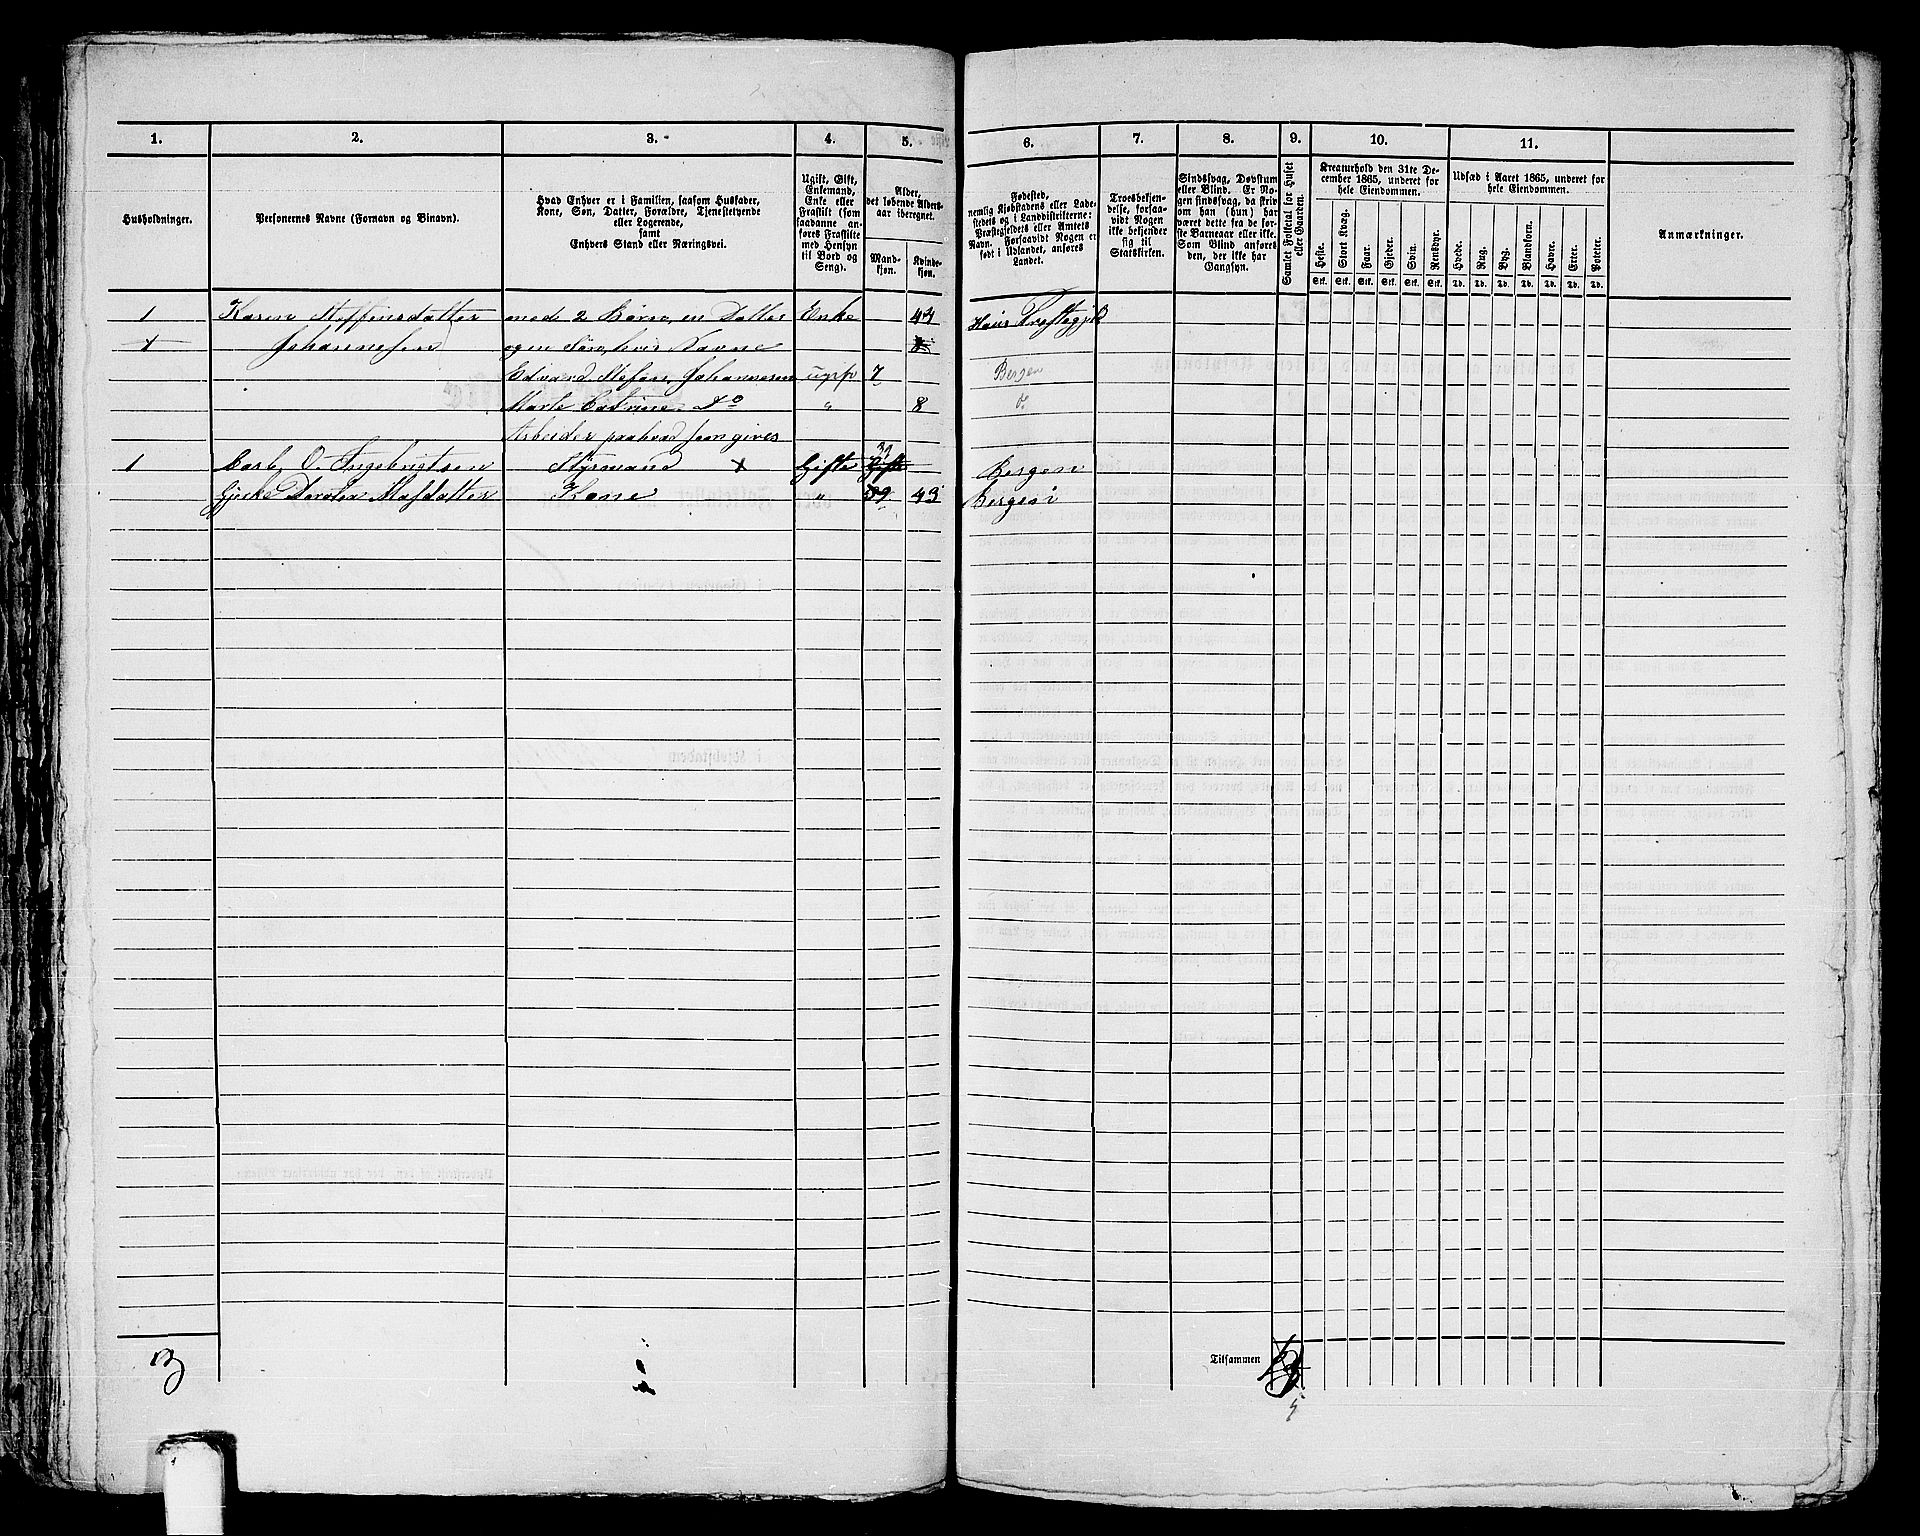 1. 2. 3. 4. 5. 6. 7. 8. 9. 10. 11.
Husholdninger.
Personernes Navne (Fornavn og Binavn).
Hvad Enhver er i Familien, saasom Husfader,
Kone, Søn, Datter, Forældre, Tjenestetyende
eller Logerende,
samt
Enhvers Stand eller Næringsvei.
Ugift, Gift,
Enkemand,
Enke eller
Fraskilt (som
saadanne an-
føres Fraskilte
med Hensyn
til Bord og
Seng).
Alder,
det løbende Alders-
aar iberegnet.
Mand-
kjøn.
Kvinde-
kjøn.
Fødested,
nemlig Kjøbstadens eller Lade-
stedets og i Landdistrikterne:
Præstegjeldets eller Amtets
Navn. Forsaavidt Nogen er
født i Udlandet, anføres
Landet.
Troesbekjen-
delse, forsaa-
vidt Nogen
ikke bekjender
sig til
Statskirken.
Sindssvag, Døvstum
eller Blind. Er No-
gen sindssvag, da skriv
om han (hun) har
været dette fra de før-
ste Barneaar eller ikke.
Som Blind anføres
den, der ikke har
Gangsyn.
Samlet Folketal for Huset
eller Gaarden.
Kreaturhold den 31te De-
cember 1865, underet for
hele Eiendommen.
Heste. Stort Kvæg. Faar. Gjeder. Svin. Rensdyr.
Stk. Stk. Stk. Stk. Stk. Stk.
Udsæd i Aaret 1865, underet for
hele Eiendommen.
Hvede. Rug. Byg. Blandkorn. Havre. Erter. Poteter.
Td. Td. Td. Td. Td. Td. Td.
Anmærkninger.
1 Karen Steffensdatter med 2 Børn, en Datter Enke 44 Haus
Johannesen og en Søn, hvis Navne
Edvard Stefan Johannesen 7 Bergen
Marte Catrine Do " 8
Arbeider paahvad som gives
1 Carl O. Ingebrigtsen Styrmand x Gifte Bergen
Kone " 39 43 Bergen
3
Tilsammen
5